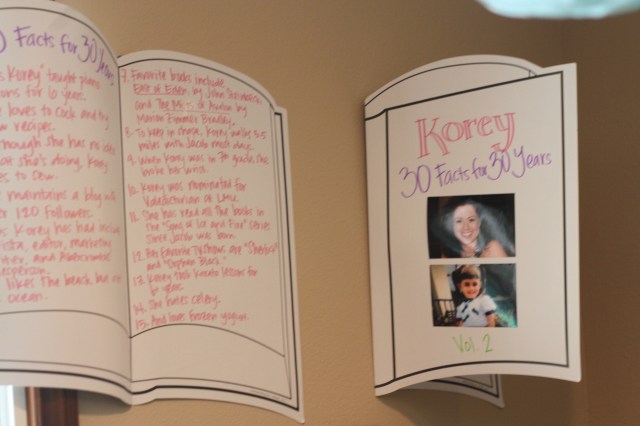 Facts for 30 Years
Korey" taught piano
for 6 years.
loves to cook and try
recipes.
she has no idea
she's doing, Korey
to sew.
maintains a blog with
120 followers.
Korey has had
editor, marketing
and Abercrombie
likes the beach, but
ocean.
7. Favorite books include
East of Eden by John Steinbeck
and The of Avalon by
Marion Zimmer Bradley.
8. To keep in shape, Korey walks 3.5
miles with Jacob most days.
9. When Korey was in 7th grade, she
broke her wrist.
10. Korey was nominated for
Valedictorian at LMU.
11. She has read all the books in
the "Song of Ice and Fire" series
since Jacob was born.
12. Her Favorite TV Shows are "Sherlock"
and "Orphan Black."
13. Korey took Karate lessons for
years.
14. She hates celery.
15. And loves frozen yogurt.
Korey
30 Facts for 30 Years
Vol. 2